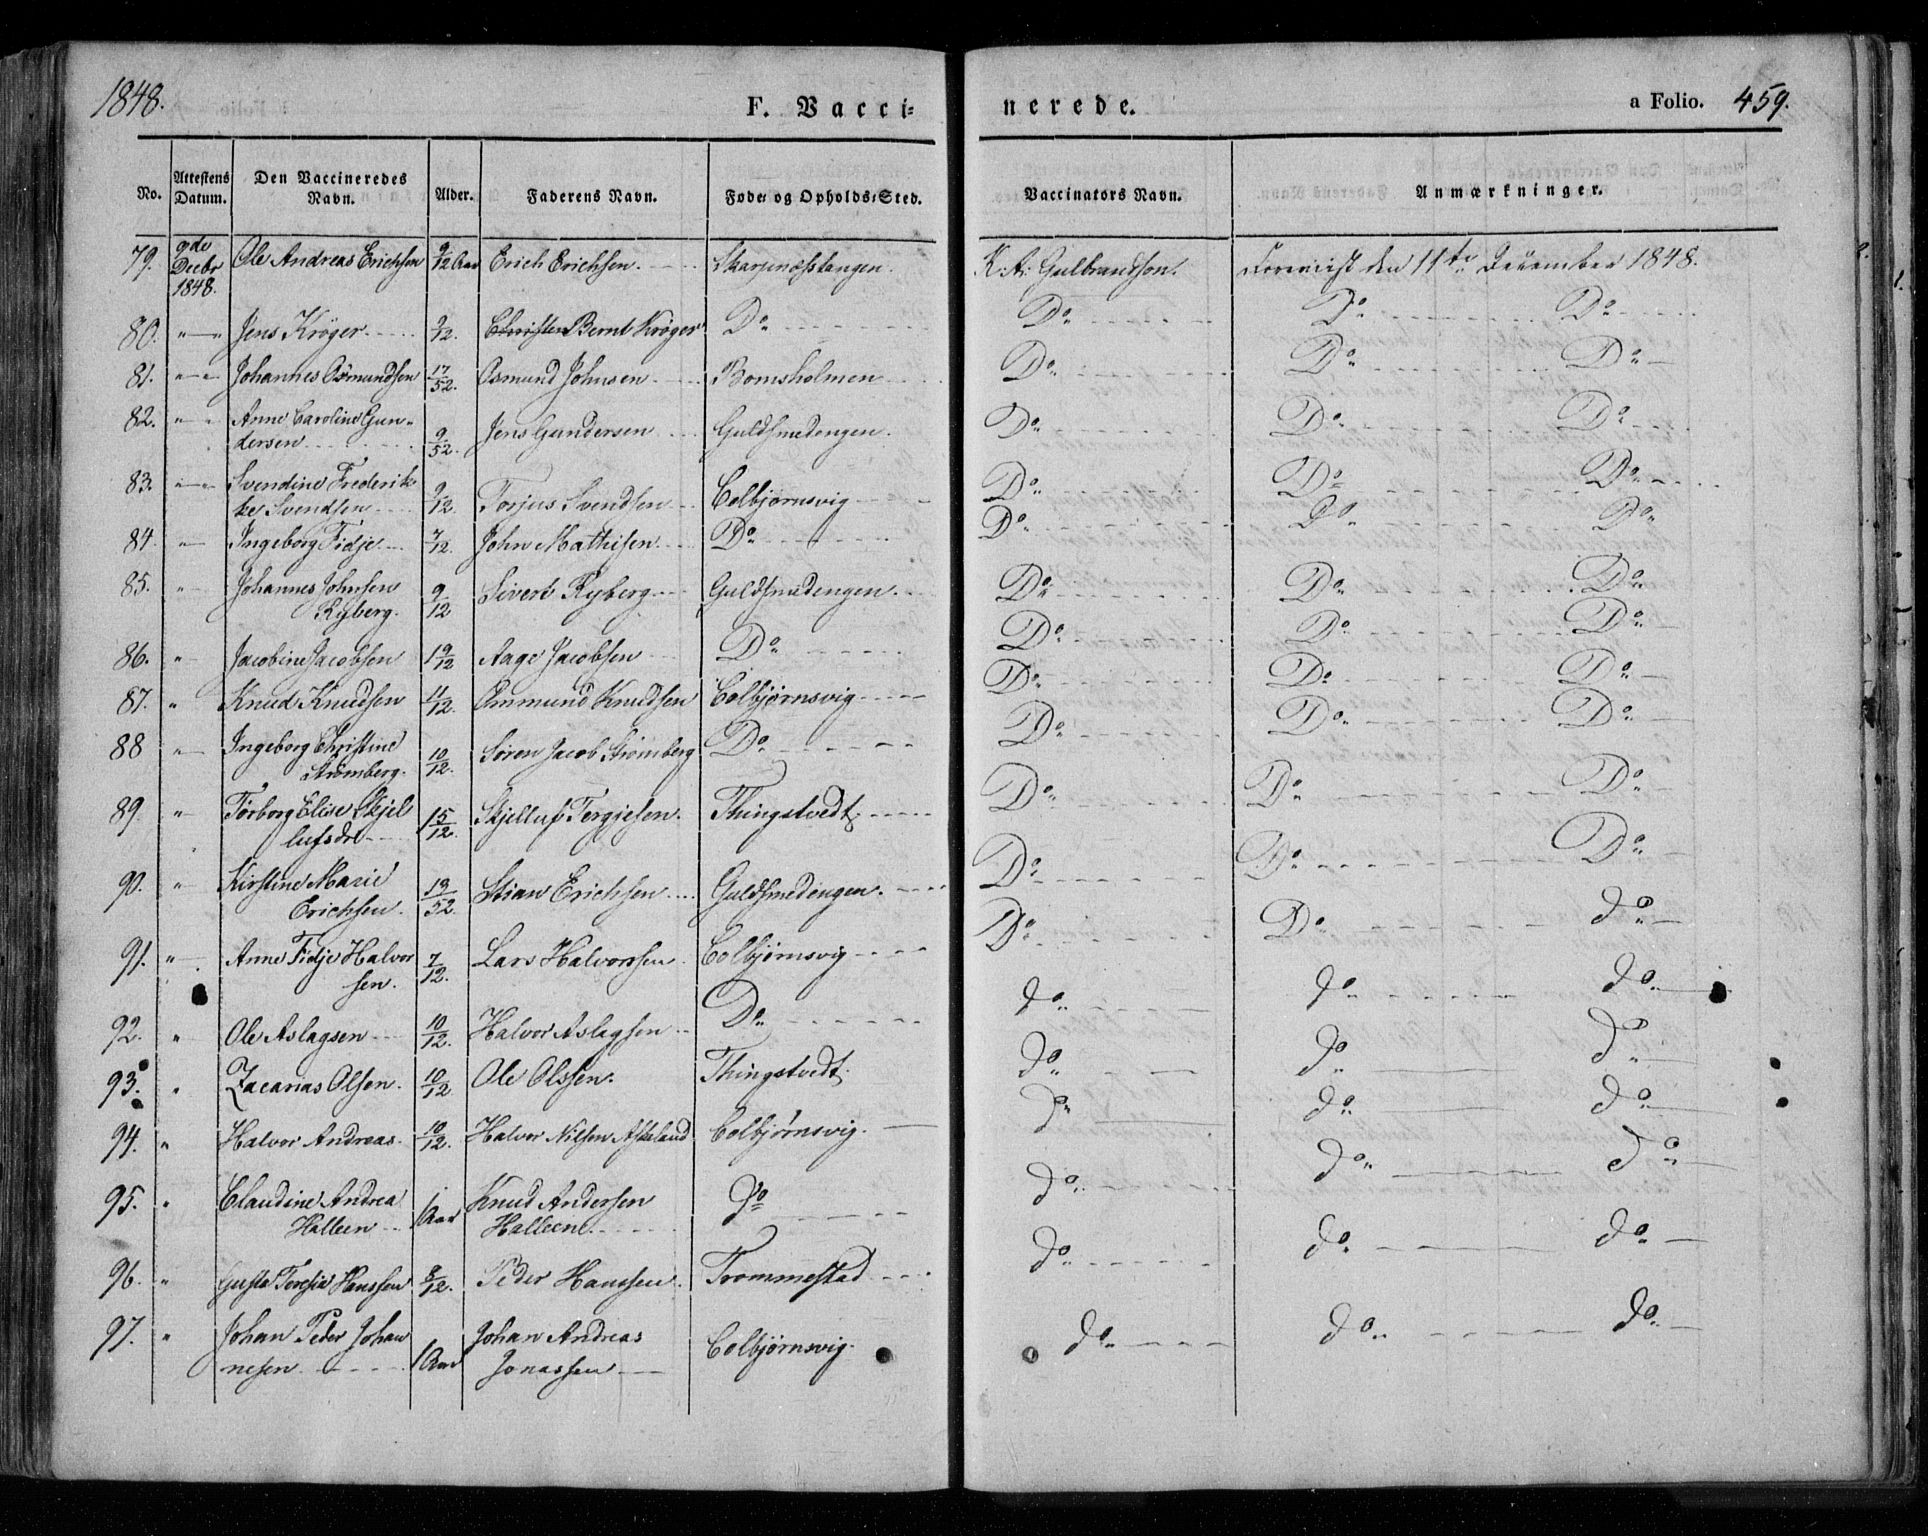 1848. F. Vacci- nerede. a Folio. 459.
No. Attestens Datum. Den Vaccineredes Navn. Alder. Faderens Navn. Føde- og Opholds-Sted. Vaccinators Navn. Anmærkninger.
79. 9de Decbr 1848. Ole Andreas Erichsen 9/12 Aar Erich Erichsen. Skarpnæstangen. K. A. Gulbrandson. Foreviist den 11te December 1848.
80. " " Jens Krøger 9/12. Christen Bernt Krøger. Do Do Do Do
81. " " Johannes Osmundsen 17/52. Osmund Johnsen Bomsholmen Do Do Do
82. " " Anne Caroline Gun-
dersen 9/52. Jens Gundersen Guldsmedengen. Do Do Do
83. " " Svendine Frederik-
ke Svendsen 9/12. Torjus Svendsen Colbjørnsvig Do Do Do
84. " Ingeborg Fidje 7/12. John Mathisen Do Do Do Do
85. " Johannes Johnsen
Ryberg. 9/12 Sivert Ryberg Guldsmedengen. Do Do Do
86. " Jacobine Jacobsen 19/12 Aage Jacobsen Do Do Do Do
87. " Knud Knudsen 11/12. Ommund Knudsen Colbjørnsvig Do Do Do
88 " Ingeborg Christine
Strømberg. 10/12. Søren Jacob Strømberg Do Do Do Do
89. " Torborg Elise Skjel
lufsdr 15/12. Skjelluf Tergiesen. Thingstvedt Do Do Do
90. " Kirstine Marie
Erichsen. 19/52. Stian Erichsen Guldsmedengen. Do Do Do
91. " Anne Fidje Halvor
sen. 7/12. Lars Halvorsen Colbjørnsvig Do Do do
92. " Ole Aslagsen 10/12. Halvor Aslagsen Do do do do
93. " Zacarias Olsen. 10/12 Ole Olssen. Thingstvedt. do do do
94. " Halvor Andreas. 10/12. Halvor Nilsen Askeland Colbjørnsvig. do do do
95. " Claudine Andrea
Halleen 1 Aar Knud Andersen
Halleen do do do do
96. " Gusta Teresia Hanssen 8/12. Peder Hanssen. Trommestad do do do
97. " Johan Peder Johan
nesen 1 Aar Johan Andreas
Jonassen Colbjørnsvig. do do do